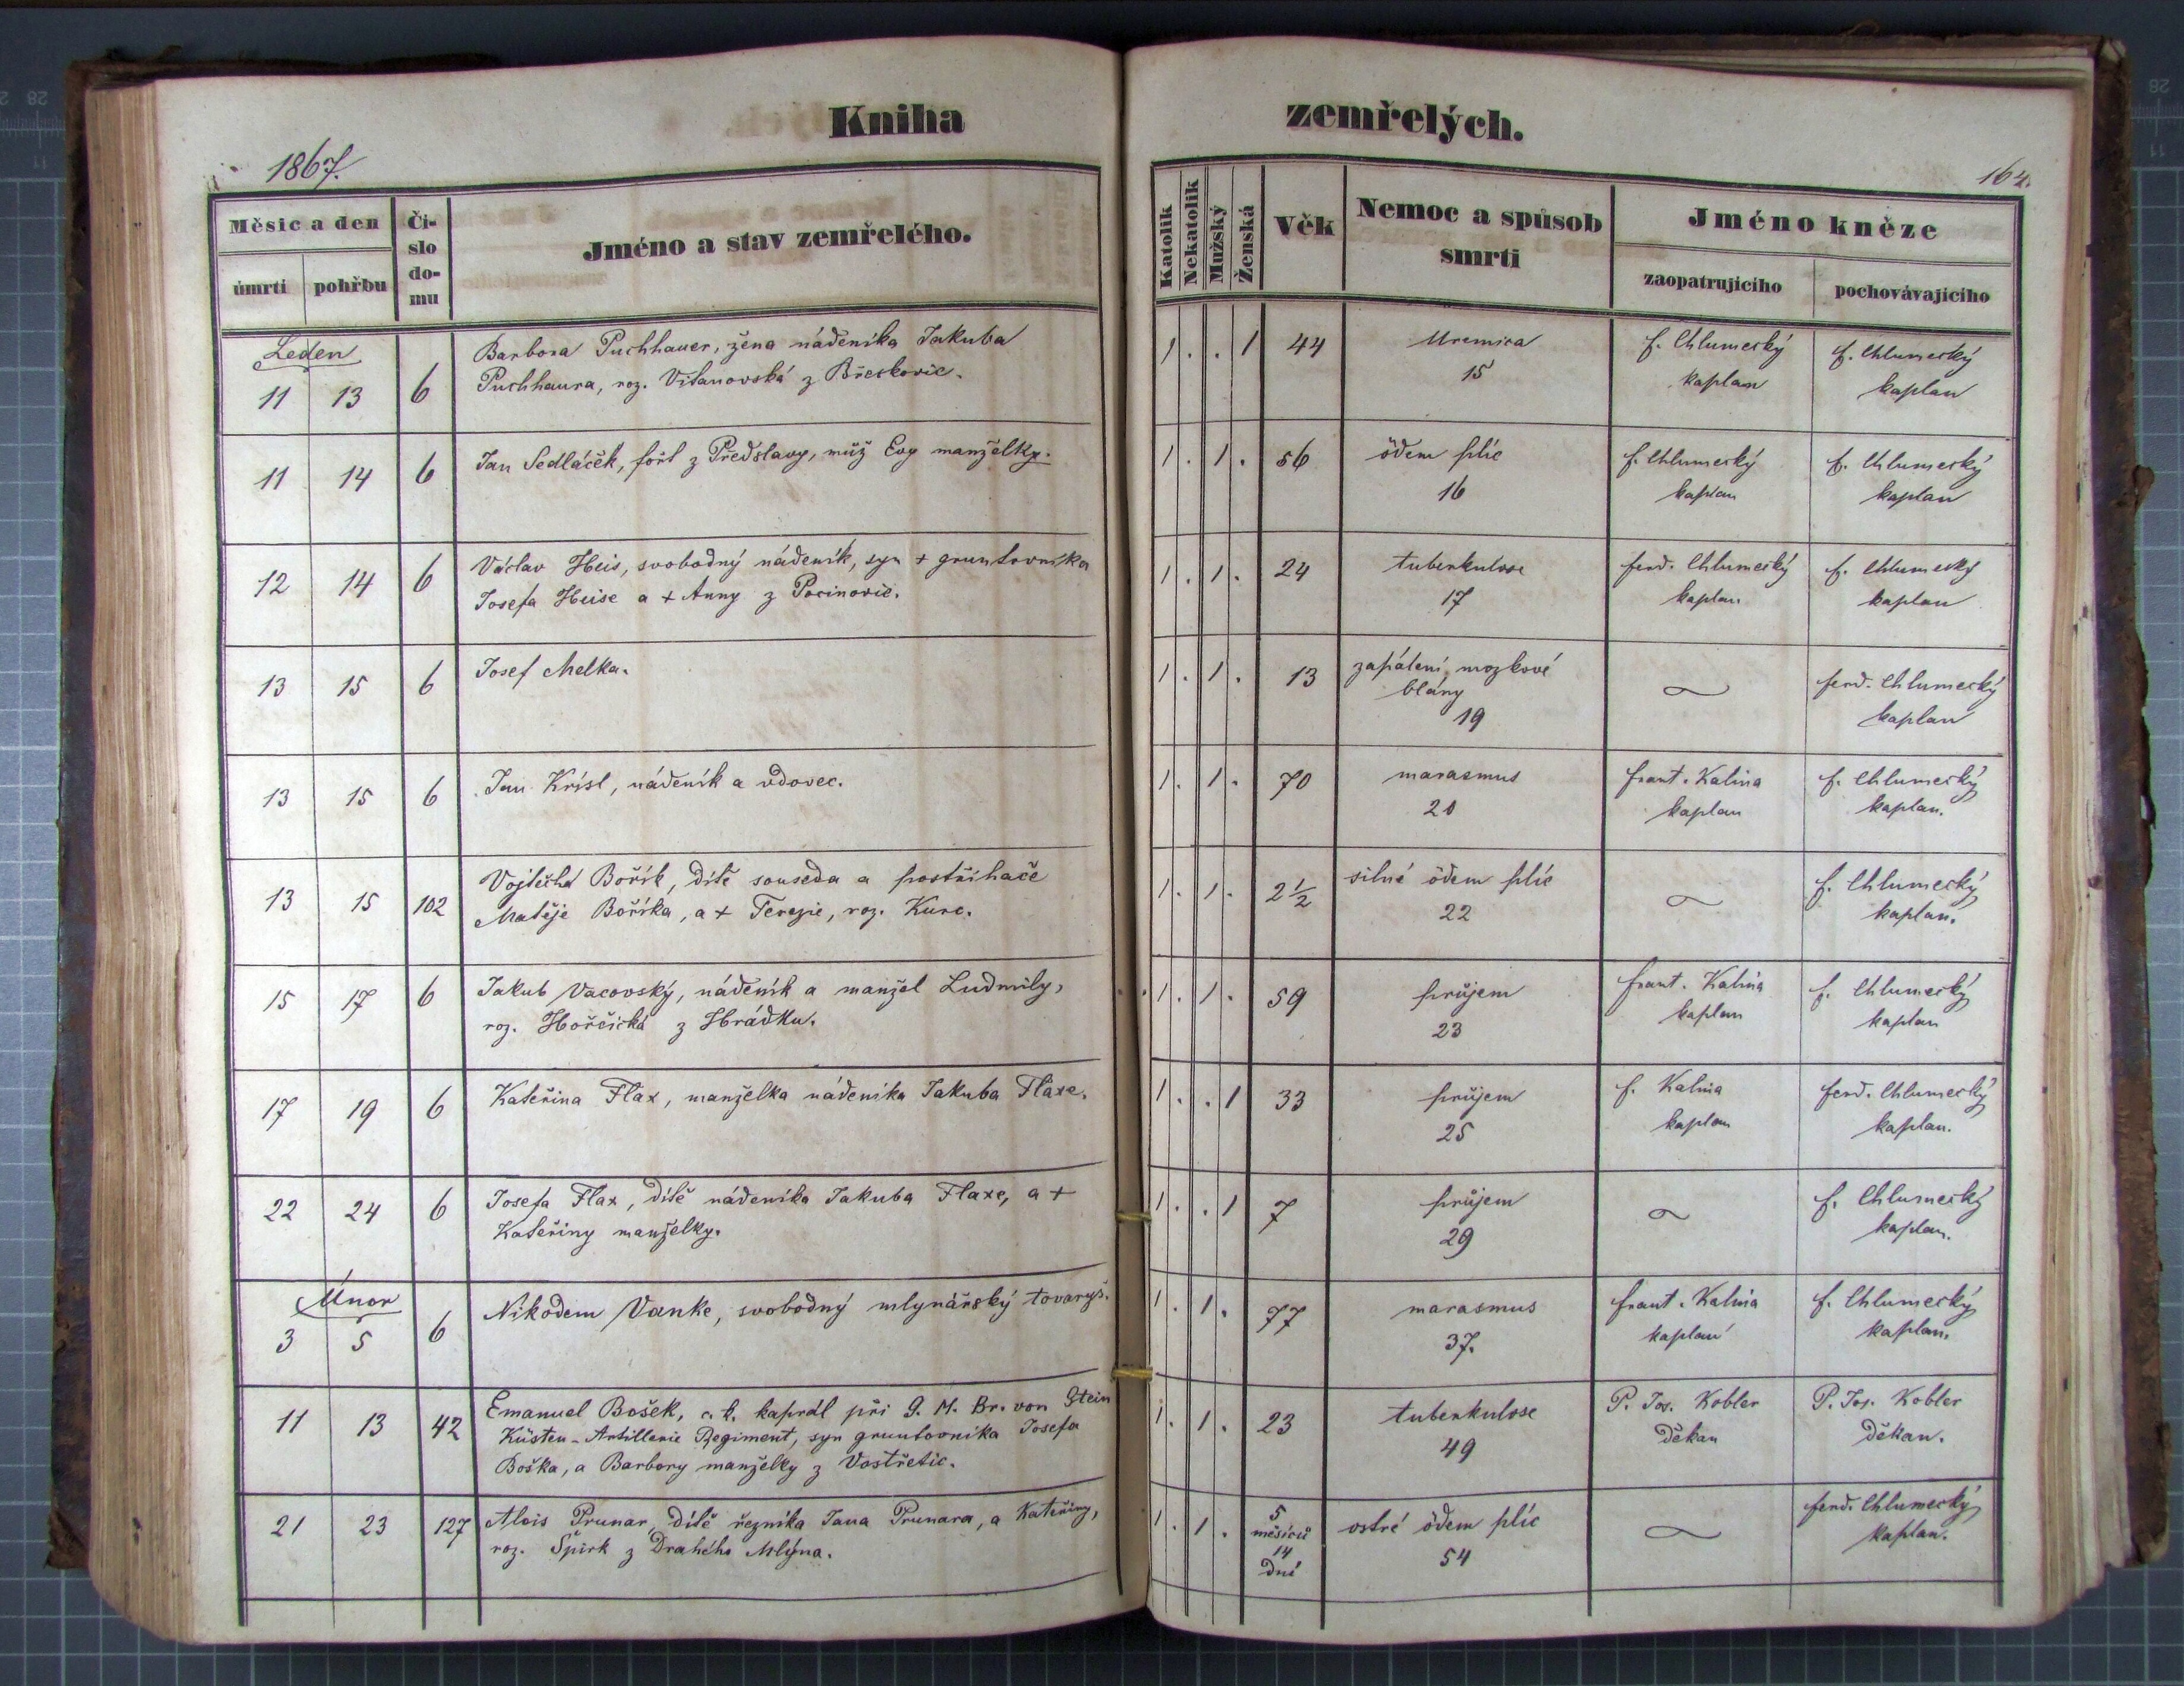 Kniha zemřelých.
1867.
164.
Měsíc a den
úmrtí
pohřbu
Čí-
slo
do-
mu
Jméno a stav zemřelého.
Katolík
Nekatolík
Mužský
Ženská
Věk
Nemoc a spůsob
smrti
Jméno kněze
zaopatrujícího
pochovávajícího
Leden
Barbora Puchhauer, žena nádeníka Jakuba
11 13 6 Puchhaura, roz. Vitanovská z Břeskovic.
1 . . 1 44 Uremica f. Chlumecký f. Chlumecký
15 kaplan kaplan
11 14 6 Jan Sedláček, fořt z Předslavy, muž Evy manželky.
1 . 1 . 56 ödem plic f. Chlumecký f. Chlumecký
16 kaplan kaplan
12 14 6 Václav Heis, svobodný nádeník, syn + gruntovníka
Josefa Heise a + Anny z Pocinovic.
1 . 1 . 24 tuberkulose ferd. Chlumecký f. Chlumecký
17 kaplan kaplan
13 15 6 Josef Melka.
1 . 1 . 13 zapálení mozkové ferd. Chlumecký
blány kaplan
19
13 15 6 Jan Krisl, nádeník a vdovec.
1 . 1 . 70 marasmus frant. Kalina f. Chlumecký
20 kaplan kaplan.
13 15 102 Vojtěch Bořík, dítě souseda a postřihače
Matěje Boříka, a + Terezie, roz. Kurc.
1 . 1 . 2 1/2 silné ödem plic f. Chlumecký
22 kaplan.
15 17 6 Jakub Vacovský, nádeník a manžel Ludmily,
roz. Hořčická z Hrádku.
1 . 1 . 59 průjem frant. Kalina f. Chlumecký
23 kaplan kaplan
17 19 6 Kateřina Flax, manželka nádeníka Jakuba Flaxe.
1 . . 1 33 průjem f. Kalina ferd. Chlumecký
25 kaplan kaplan.
22 24 6 Josefa Flax, dítě nádeníka Jakuba Flaxe, a +
Kateřiny manželky.
1 . . 1 7 průjem f. Chlumecký
29 kaplan.
Únor
3 5 6 Nikodem Vanke, svobodný mlynářský tovaryš.
1 . 1 . 77 marasmus frant. Kalina f. Chlumecký
37. kaplan kaplan.
11 13 42 Emanuel Bošek, c. k. kaprál při G. M. Br. von Stein
Küsten-Artillerie Regiment, syn gruntovníka Josefa
Boška, a Barbory manželky z Vostřetic.
1 . 1 . 23 tuberkulose P. Jos. Kobler P. Jos. Kobler
49 děkan děkan.
21 23 127 Alois Prunar, dítě řezníka Jana Prunara, a Kateřiny,
roz. Špirk z Drahého Mlýna.
1 . 1 . 5 měsíců 14 dní ostré ödem plic ferd. Chlumecký
54 kaplan.